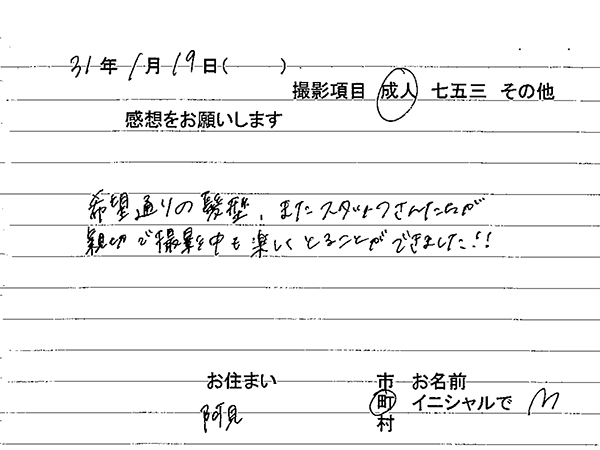 31年1月19日(　　)
撮影項目 成人 七五三 その他
感想をお願いします
希望通りの髪型、またスタッフさんたちが
親切で撮影中も楽しくとることができました!!
お住まい 市 お名前
阿見 町 イニシャルで M
村